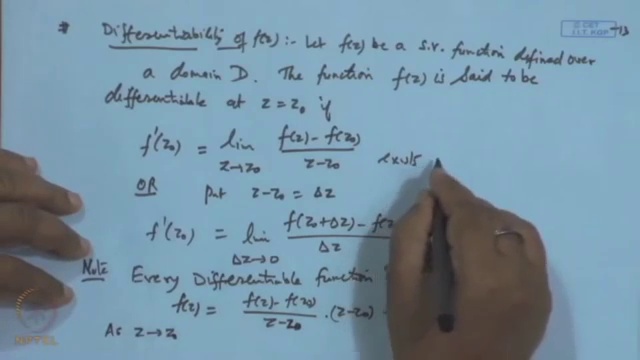 * Differentiability of f(z) :- Let f(z) be a s.v. function defined over
a domain D. The function f(z) is said to be
differentiable at z = z₀ if
f'(z₀) = lim_{z→z₀} (f(z) - f(z₀)) / (z - z₀) exists
OR put z - z₀ = Δz
f'(z₀) = lim_{Δz→0} (f(z₀+Δz) - f(z / Δz
Note Every Differentiable function
f(z) = (f(z) - f(z₀)) / (z - z₀) · (z - z₀)
As z→z₀
© CET
I.I.T. KGP
13
NPTEL